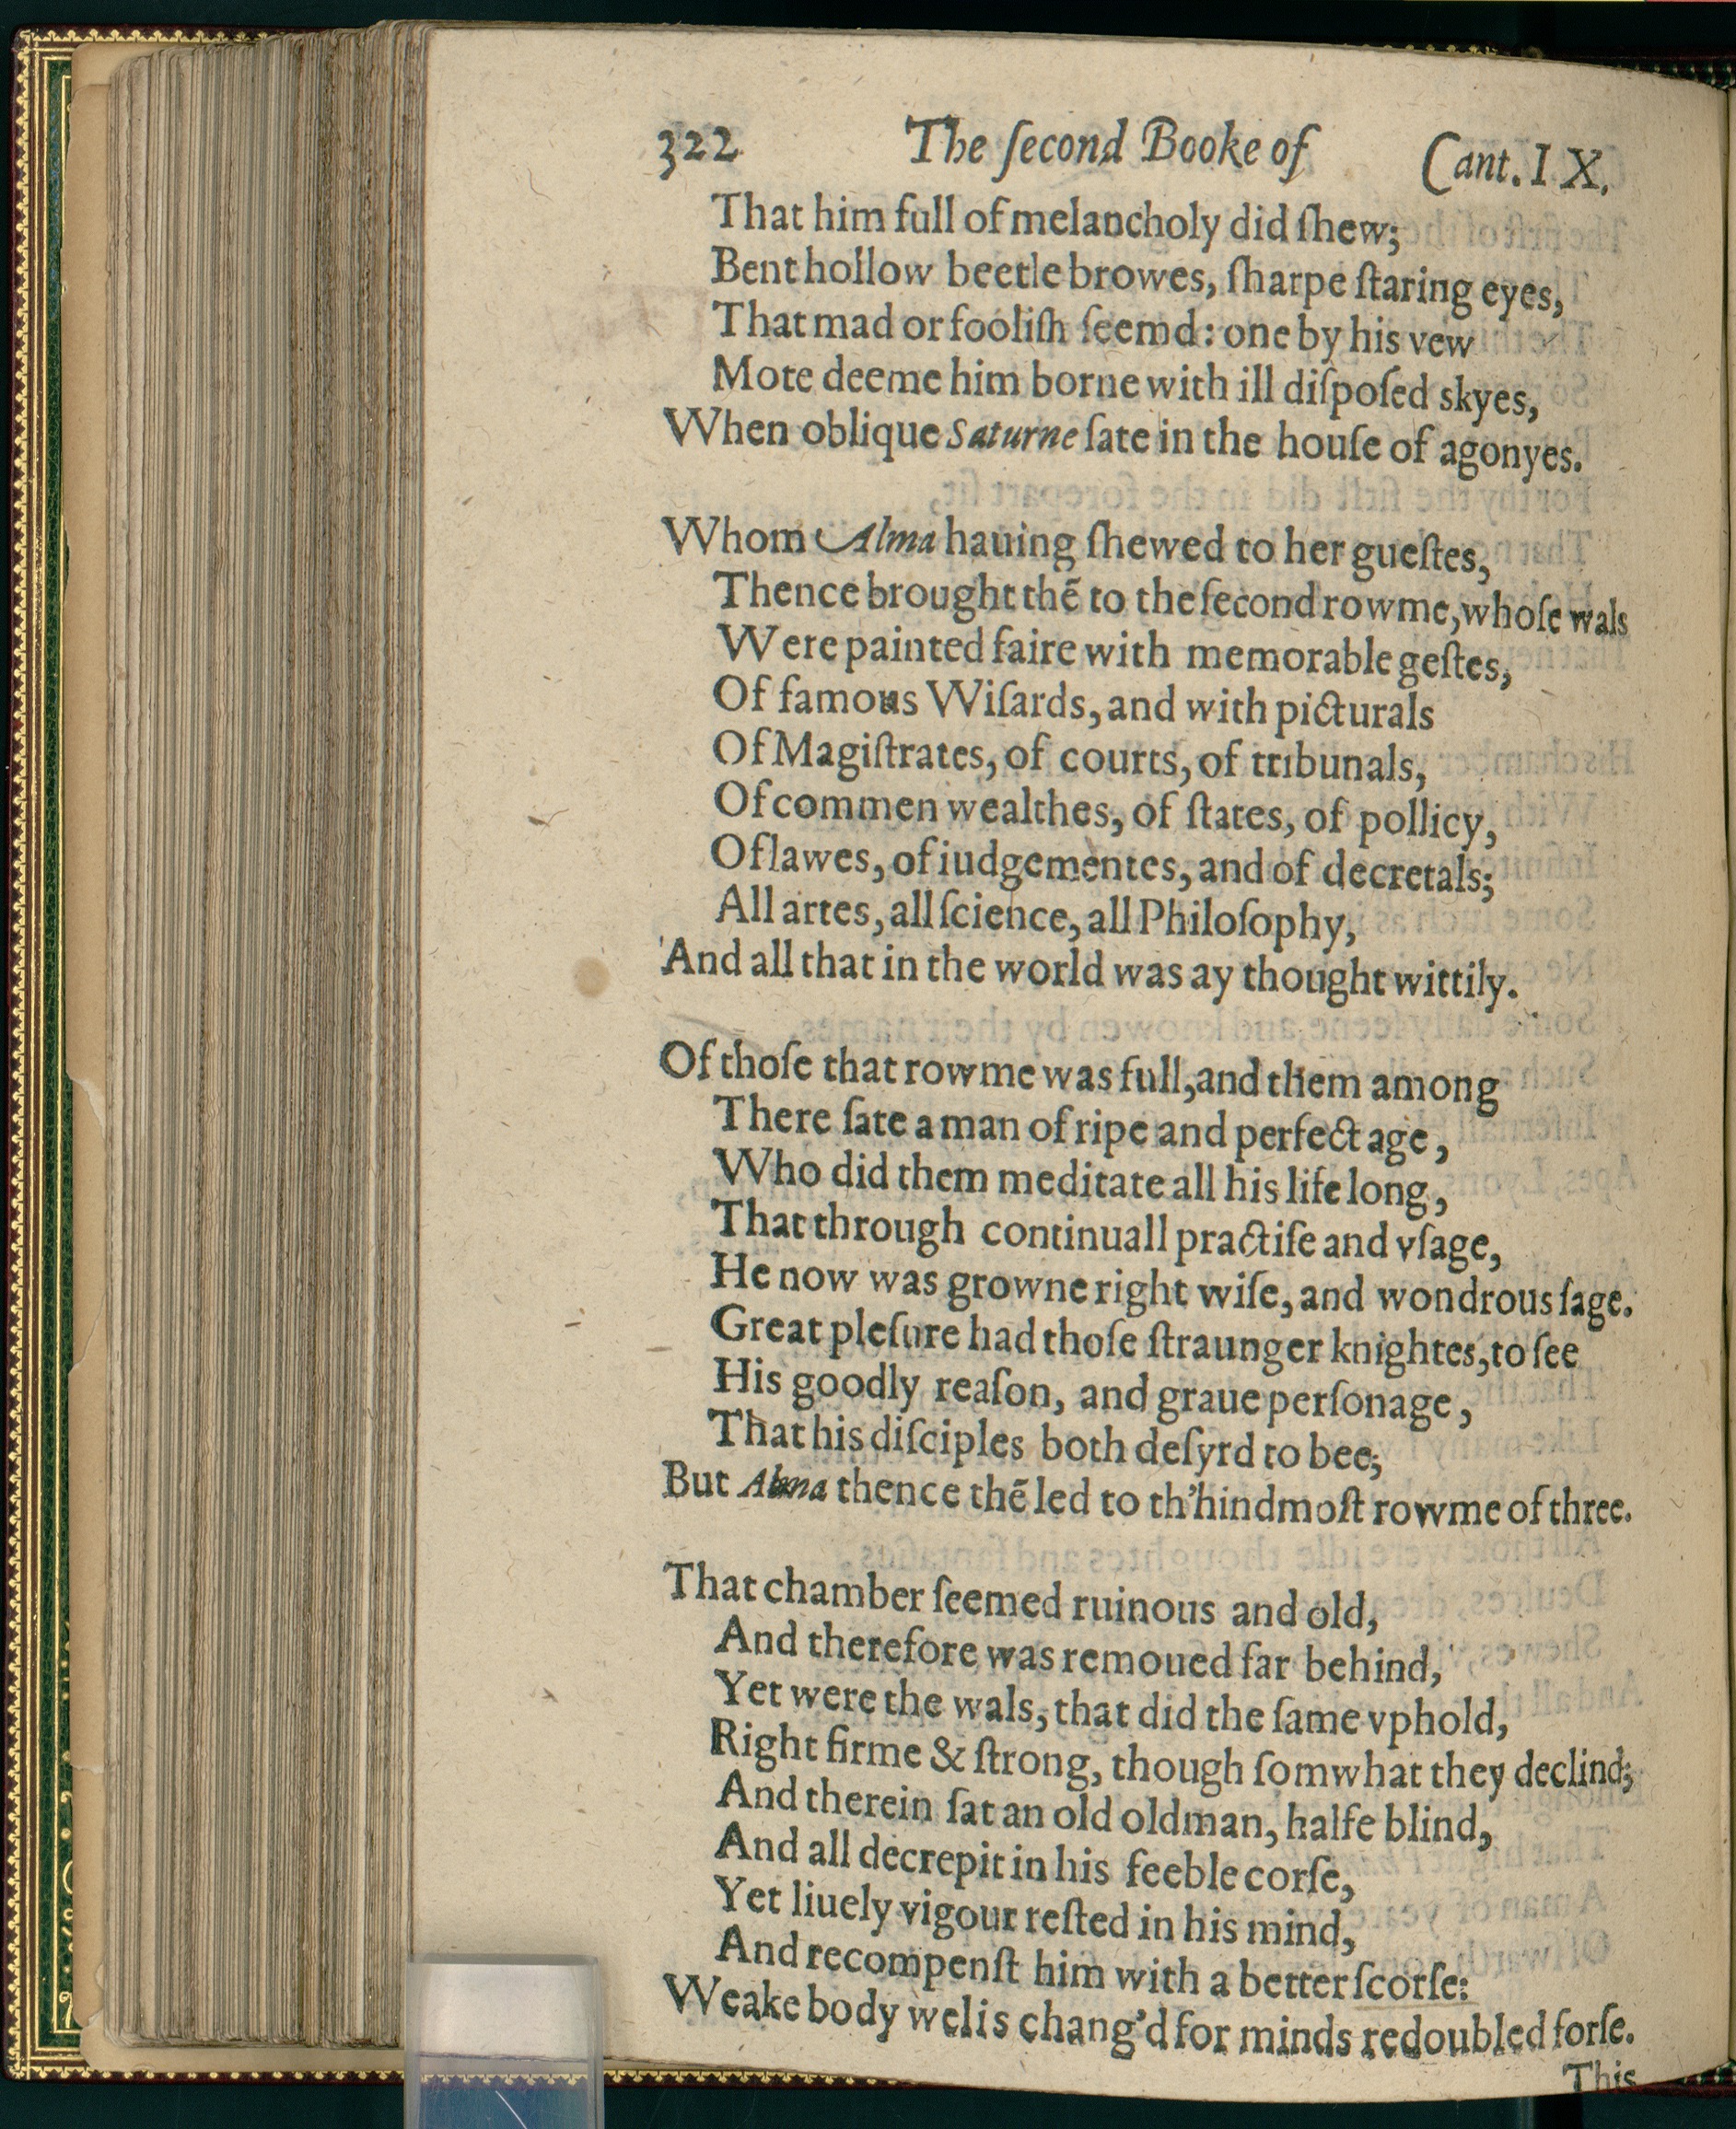 322 The ſecond Booke of Cant. IX.
That him full of melancholy did ſhew;
Bent hollow beetle browes, ſharpe ſtaring eyes,
That mad or fooliſh ſeemd: one by his vew
Mote deeme him borne with ill diſpoſed skyes,
When oblique Saturne ſate in the houſe of agonyes.
Whom Alma hauing ſhewed to her gueſtes,
Thence brought thẽ to the ſecond rowme, whoſe wals
Were painted faire with memorable geſtes,
Of famous Wiſards, and with picturals
Of Magiſtrates, of courts, of tribunals,
Of commen wealthes, of ſtates, of pollicy,
Of lawes, of iudgementes, and of decretals;
All artes, all ſcience, all Philoſophy,
And all that in the world was ay thought wittily.
Of thoſe that rowme was full, and them among
There ſate a man of ripe and perfect age,
Who did them meditate all his life long,
That through continuall practiſe and vſage,
He now was growne right wiſe, and wondrous ſage.
Great pleſure had thoſe ſtraunger knightes, to ſee
His goodly reaſon, and graue perſonage,
That his diſciples both deſyrd to bee;
But Alma thence thẽ led to th'hindmoſt rowme of three.
That chamber ſeemed ruinous and old,
And therefore was remoued far behind,
Yet were the wals, that did the ſame vphold,
Right firme & ſtrong, though ſomwhat they declind;
And therein ſat an old oldman, halfe blind,
And all decrepit in his feeble corſe,
Yet liuely vigour reſted in his mind,
And recompenſt him with a better ſcorſe:
Weake body wel is chang'd for minds redoubled forſe.
This